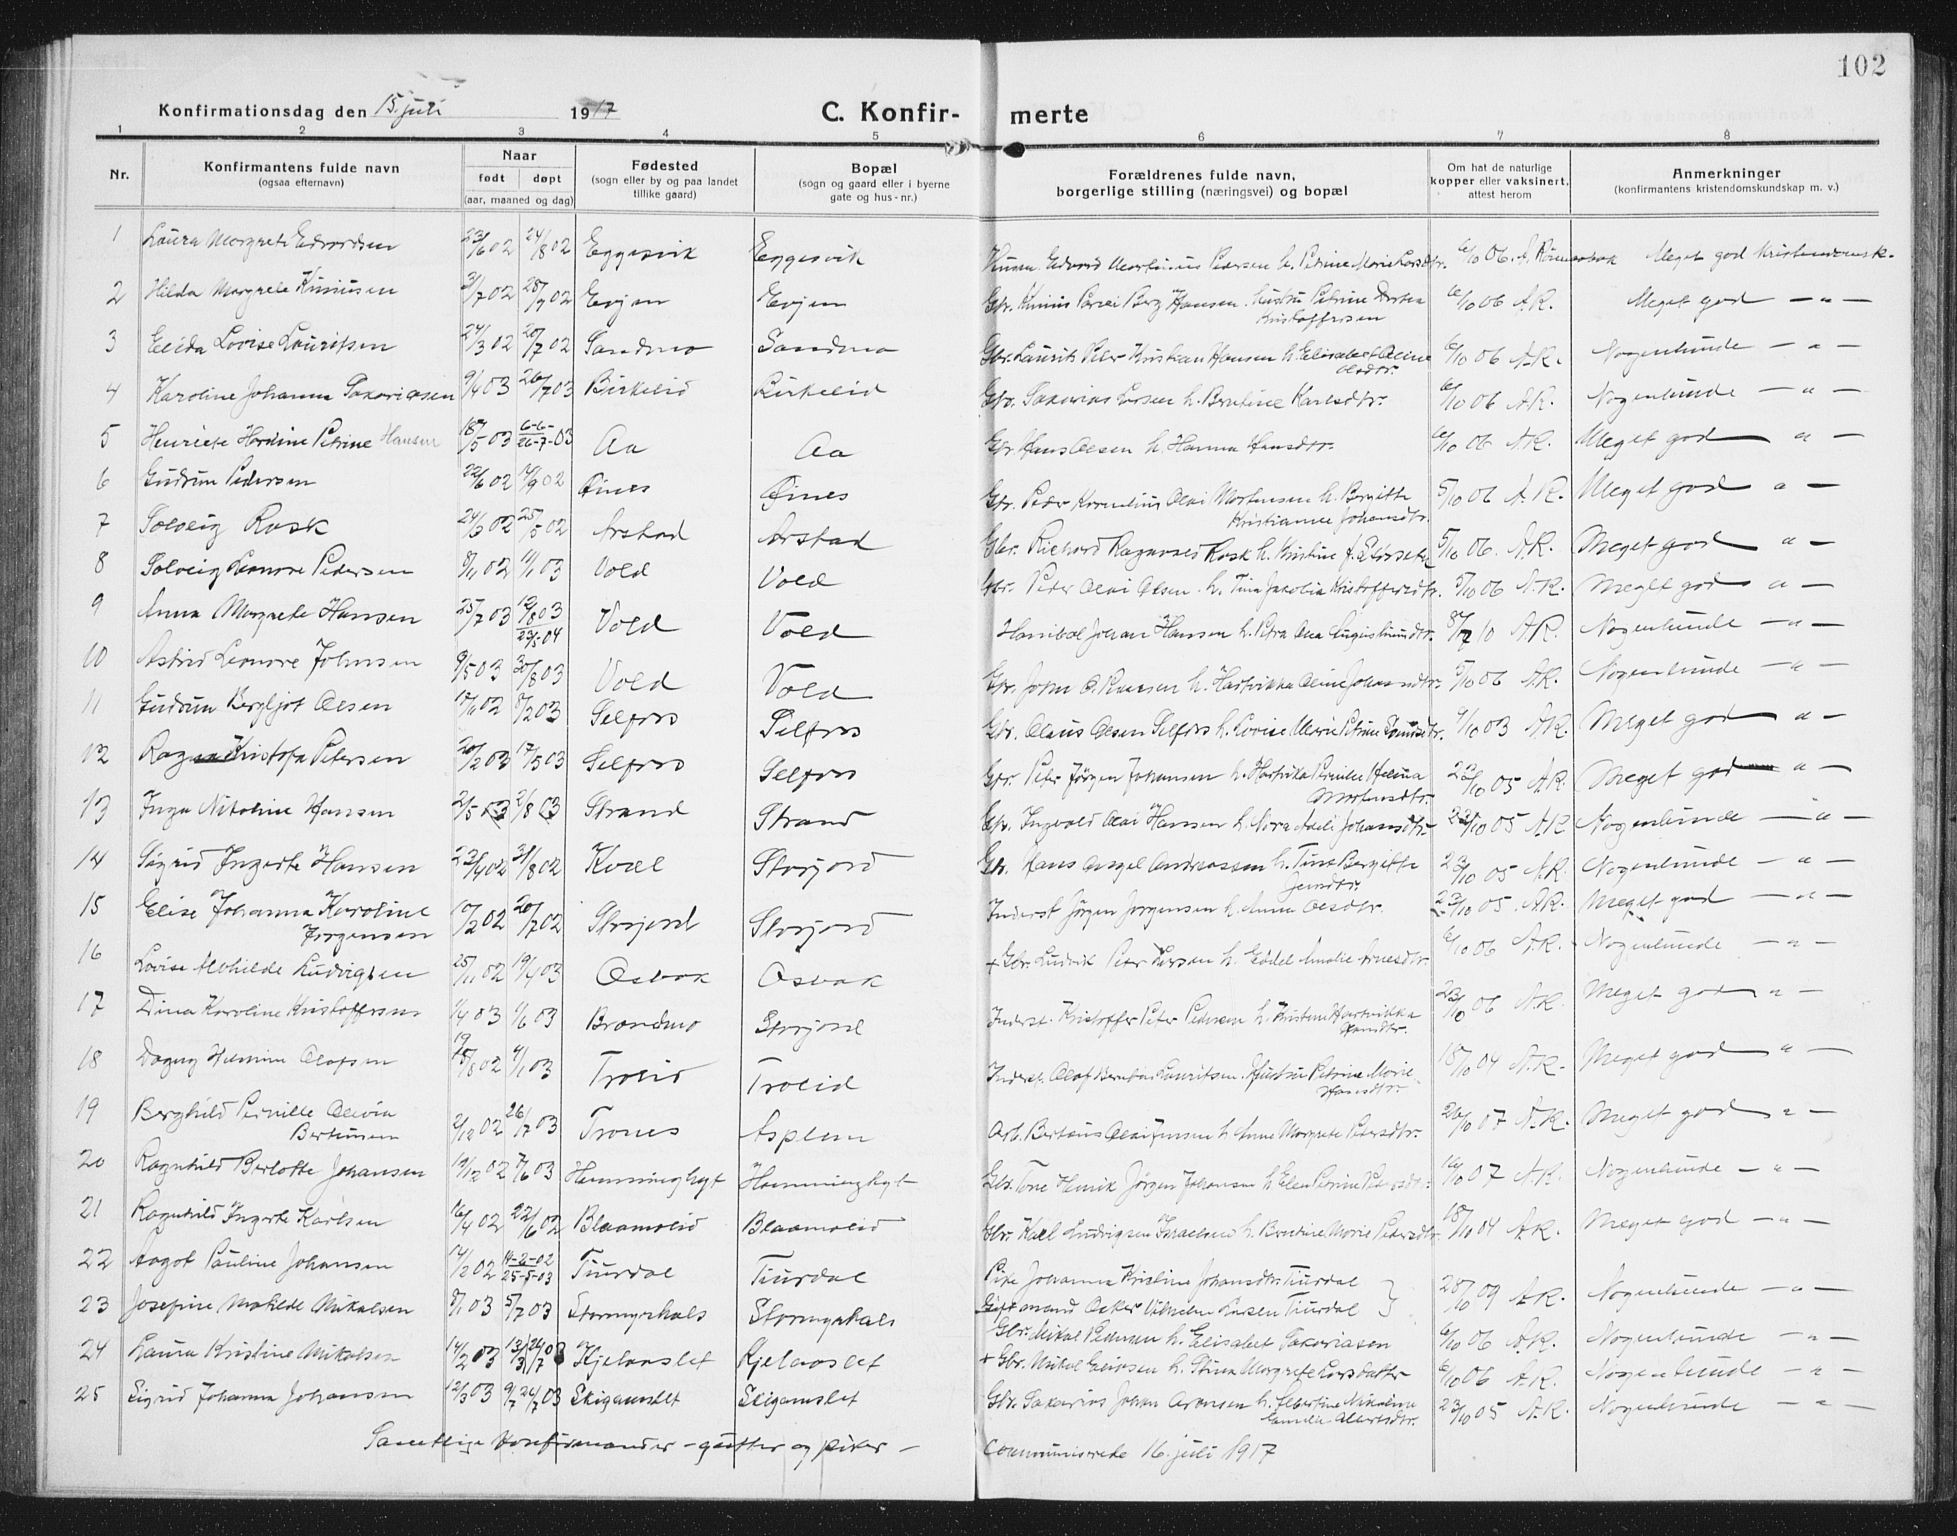 102
Konfirmationsdag den 15. juli 1917 C. Konfir- merte
1 2 3 4 5 6 7 8
Nr. Konfirmantens fulde navn (ogsaa efternavn) Naar født døpt (aar, maaned og dag) Fødested (sogn eller by og paa landet tillike gaard) Bopæl (sogn og gaard eller i byerne gate og hus-nr.) Forældrenes fulde navn, borgerlige stilling (næringsvei) og bopæl Om hat de naturlige kopper eller vaksinert, attest herom Anmerkninger (konfirmantens kristendomskundskap m. v.)
1 Laura Margrete Edvardsen 23/6 02 24/8 02 Eggesvik Eggesvik Edvard Martinus Pedersen h. Petrine Marie Larsdtr. 6/10 06. A. Meget god Kristendomsk.
2 Hilda Margrete 31/7 02 28/9 02 Evjen Evjen Gbr. Berg Hansen. hustru Petrine Dortea Kristoffersen 6/10 06 A.R. Meget god — " —
3 Elida Lovise Lauritsen 24/3 02 20/7 02 Sandmo Sandmo Gbr. Laurits Peter Kristian Hansen h. Elisabet Oline Olsdtr. 6/10 06 A.R. Nogenlunde — " —
4 Karoline Johanna Sakariasen 9/4 03 26/7 03 Birkelid Birkelid Gbr. Sakarias Larsen h. Berntine Karlsdtr. 6/10 06 A.R. Nogenlunde — " —
5 Henriete Hardine Petrine Hansen 18/5 03 6-6- 26-7-03 Aa Aa Gbr. Hans Olsen h. Hanna Hansdtr. 6/10 06 A.R. Meget god — " —
6 Gudrun Pedersen 22/6 02 14/9 02 Øines Øines Gbr. Peder Kornelius Olai Mortensen h. Berntte Kristianne Johansdtr. 5/10 06 A.R. Meget god " —
7 Solveig Rask 24/3 02 25/5 02 Arstad Arstad Gbr. Richard Rask h. Kristine f. 5/10 06. A.R. Meget god " —
8 Solveig Leonore Pedersen 9/11 02 11/1 03 Vold Vold Gbr. Peter Olai Olsen. h. Tina Jakobia Kristoffersdtr. 5/10 06 A.R. Meget god " —
9 Anna Margrete Hansen 25/7 03 12/8 03 23/5-04 Vold Vold Hanibal Johan Hansen h. Petra Ana 10 A.R. Nogenlunde — " —
10 Astrid Leonore Johnsen 9/5 03 30/8 03 Vold Vold Gbr. John h. Hartvikka Oline Johansdtr. 5/10 06 A.R. Nogenlunde — " —
11 Gudrun Bergljot Olsen 17/11 02 8/2 03 Selfors Selfors Gbr. Olaus Olsen Selfors h. Lovise Marie Petrine 9/10 03 A.R. Meget god " —
12 Ragna Kristofa Petersen 20/2 03 17/5 03 Selfors Selfors Gbr. Peter Jørgen Johansen h. Hartvika Pernilie Helena Mortensdtr. 23/10 05 A.R. Meget god " —
13 Inga Nikoline Hansen 2/5 03 2/8 03 Strand Strand Gbr. Ingvald Olai Hansen h. Nora Adeli Johansdtr. 23/10 05 A.R. Nogenlunde — " —
14 Sigrid Ingerte Hansen 23/4 02 31/8 02 Kvæl Storjord Gbr. Hans Angel Andreassen h. Tina Bergitte Jensdtr. 23/10 05 A.R. Nogenlunde — " —
15 Elise Johanna Karoline Jørgensen 17/2 02 20/7 02 Storjord Storjord Inderst Jørgen Jørgensen h. Anna Olsdtr. 23/10 05. A.R. Meget god — " —
16 Lovise Alvhilde Ludvigsen 25/11 02 19/4 03 Osbak Osbak + Gbr. Ludvik Peter Larsen h. Edel Amalie Arnesdtr. 6/10 06 A.R. Nogenlunde — " —
17 Dina Karoline Kristoffersen 1/4 03 1/6 03 Brandmo Storjord Inderst. Kristoffer Peter Pedersen h. Kristine Hartvikka Hansdtr. 23/10 06 A.R. Meget god " —
18 Dagny Helmine Olafsen 19/8 02 4/1 03 Trolid Trolid Inderst. Olaf Berntin Lauritsen. Hustru Petrine Marie Hansdtr. 18/10 04 A.R. Meget god " —
19 Berghild Pernille Olivia Bertinsen 2/12 02 26/7 03 Trones Asplem Arb. Bertæus Olai Jensen h. Anne Margrete Petersdtr. 26/10 07 A.R. Meget god " —
20 Ragnhild Berlotte Johansen 19/12 02 7/6 03 Hemminghyt Hemminghyt Gbr. Tore Henrik Jørgen Johansen h. Elen Petrine Petersdtr. 16/10 07 A.R. Nogenlunde — " —
21 Ragnhild Ingerte Karlsen 16/4 02 22/6 02 Blaamolid Blaamolid Gbr. Karl Ludvigsen Israelsen h. Berntine Marie Pedersdtr. 18/10 04 A.R. Meget god — " —
22 Aagot Pauline Johansen 14/2 02 14-2-02 25-5-03 Tiurdal Tiurdal Pike Johanna Kristine Johansdtr. Tiurdal Osker Vilhelm Larsen Tiurdal 28/10 09 A.R. Nogenlunde — " —
23 Josefine Makilde Mikalsen 9/1 03 5/7 03 Stormyrhals Stormyrhals Gbr. Mikal Pedersen h. Elisabet Sakariasen 6/10 06 A.R. Nogenlunde — " —
24 Laura Kristine Mikalsen 14/2 03 13/3 24/7 03 Kjelaaslet Kjelaaslet + Gbr. Mikal h. Stina Margrete Larsdatter 6/10 06 A.R. Nogenlunde — " —
25 Sigrid Johanna Johansen 12/3 03 9/7 24/7 03 Skigamslet Skigamslet Gbr. Sakarias Johan Aronsen h. Albertine Nikoline Camilla Albertsdtr. 23/10 05 A.R. Nogenlunde — " —
Samtlige Konfirmander – gutter og piker – communiserede 16. juli 1917